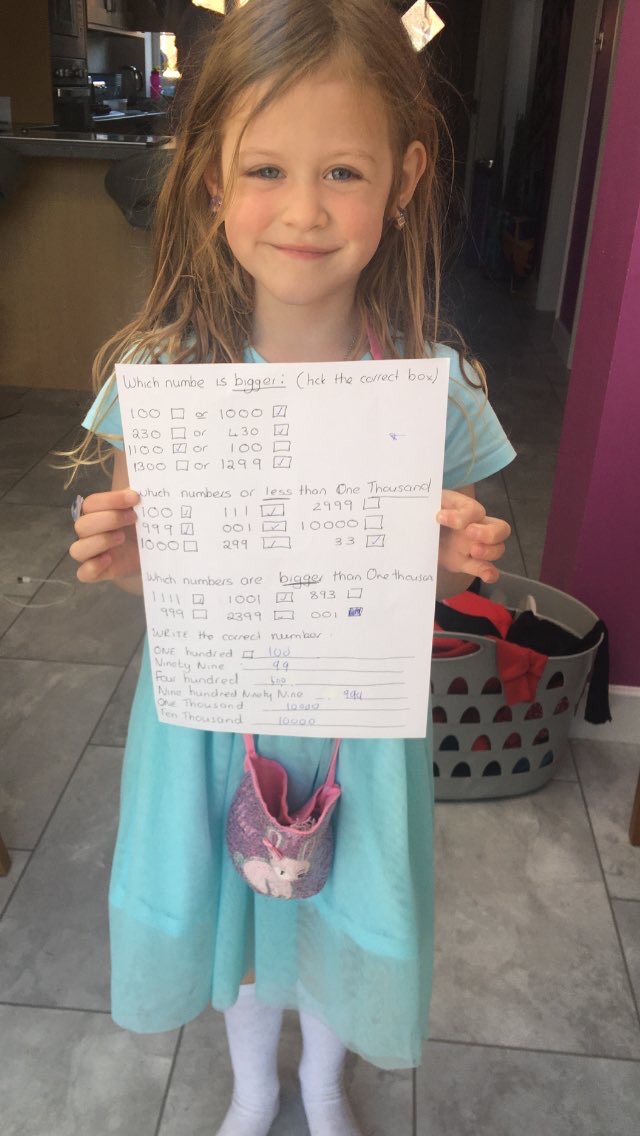 Which numbe is bigger: (tick the correct box)
100 ☐ or 1000 ☑
230 ☐ or 430 ☑
1100 ☑ or 100 ☐
1300 ☐ or 1299 ☑
Which numbers or less than One Thousand
100 ☑ 111 ☑ 2999 ☐
999 ☑ 001 ☑ 10000 ☐
1000 ☐ 299 ☑ 33 ☑
Which numbers are bigger than One thousan
1111 ☑ 1001 ☑ 893 ☐
999 ☐ 2399 ☑ 001
WRITE the correct number.
ONE hundred 100
Ninety Nine 99
Four hundred
Nine hundred Ninety Nine
One Thousand 10000
Ten Thousand 10000